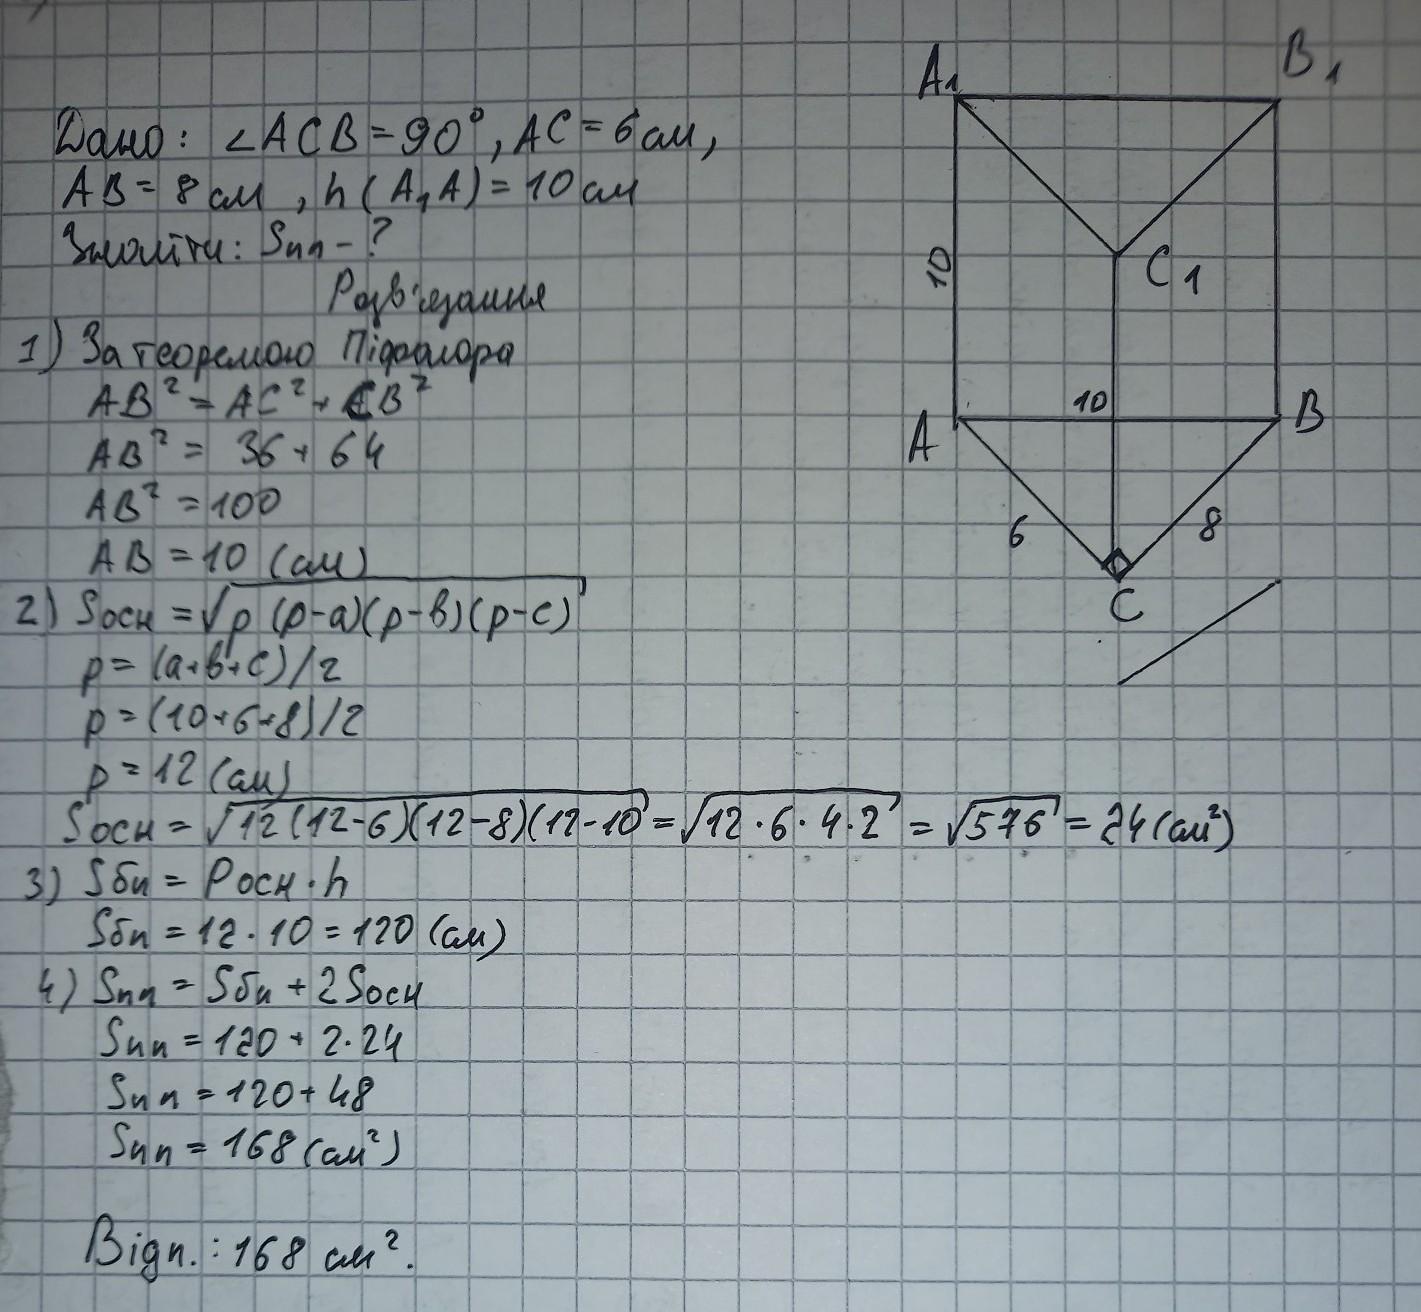 Дано: ∠ACB = 90°, AC = 6 см,
AB = 8 см, h (A₁A) = 10 см
Знайти: Sпп - ?
Розв'язання
1) За теоремою Піфагора
AB² = AC² + CB²
AB² = 36 + 64
AB² = 100
AB = 10 (см)
2) Sосн = √p (p-a)(p-в)(p-c)
p = (a+в+c)/2
p = (10+6+8)/2
p = 12 (см)
Sосн = √12(12-6)(12-8)(12-10) = √12·6·4·2 = √576 = 24 (см²)
3) Sбп = Pосн · h
Sбп = 12 · 10 = 120 (см)
4) Sпп = Sбп + 2Sосн
Sпп = 120 + 2·24
Sпп = 120 + 48
Sпп = 168 (см²)
Відп.: 168 см².
A₁
B₁
C₁
10
10
A
B
6
8
C